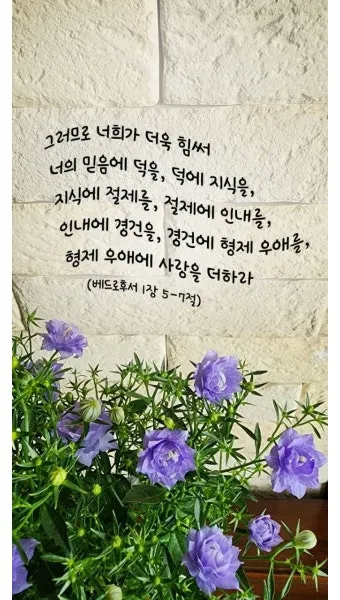 그러므로 너희가 더욱 힘써
너의 믿음에 덕을, 덕에 지식을,
지식에 절제를, 절제에 인내를,
인내에 경건을, 경건에 형제 우애를,
형제 우애에 사랑을 더하라
(베드로후서 1장 5-7절)